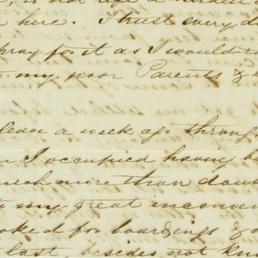 is not
here. I trust every d
pray for it as I would
to my poor Parents &
lean a week ago throug
I occupied having b
much more than dou
to my great inconven
oked for boardings &
last, besides not kn